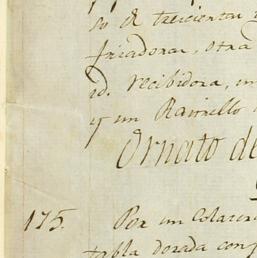 so de treicientar
fricadorar, otra
id. recibidora, un
y un Ramillo
Ornato de
175. Por un Colacero
tabla dorada con